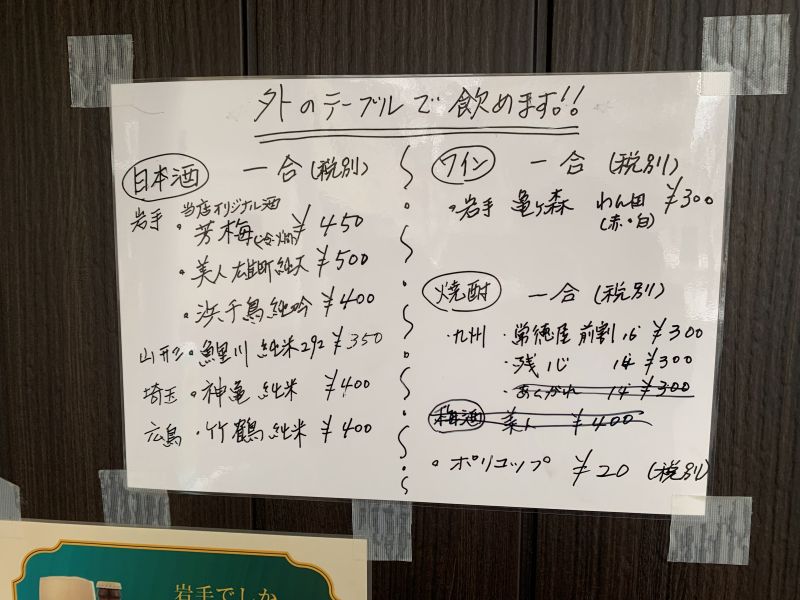 外のテーブルで飲めます!!
日本酒 一合(税別)
岩手 当店オリジナル酒
・芳梅 ¥450
・美人 雄町純大 ¥500
・浜千鳥 純吟 ¥400
山形 ・鯉川 純米292 ¥350
埼玉 ・神亀 純米 ¥400
広島 ・竹鶴 純米 ¥400
ワイン 一合 (税別)
・岩手 亀ヶ森 わん田 ¥300
(赤・白)
焼酎 一合 (税別)
・九州 ・常徳屋 前割 15 ¥300
・残心 14 ¥300
・あくがれ 14 ¥300
梅酒 美人 ¥400
・ポリコップ ¥20 (税別)
岩手でしか